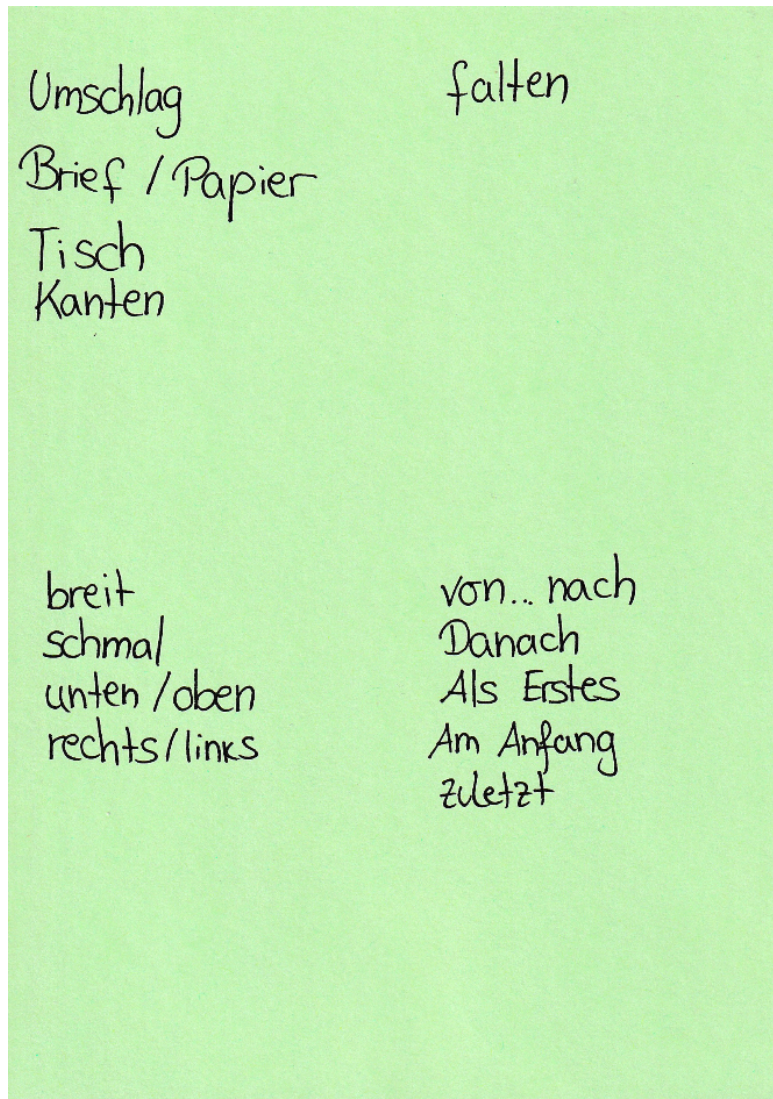 Umschlag
Brief / Papier
Tisch
Kanten
falten
breit
schmal
unten / oben
rechts / links
von... nach
Danach
Als Erstes
Am Anfang
zuletzt